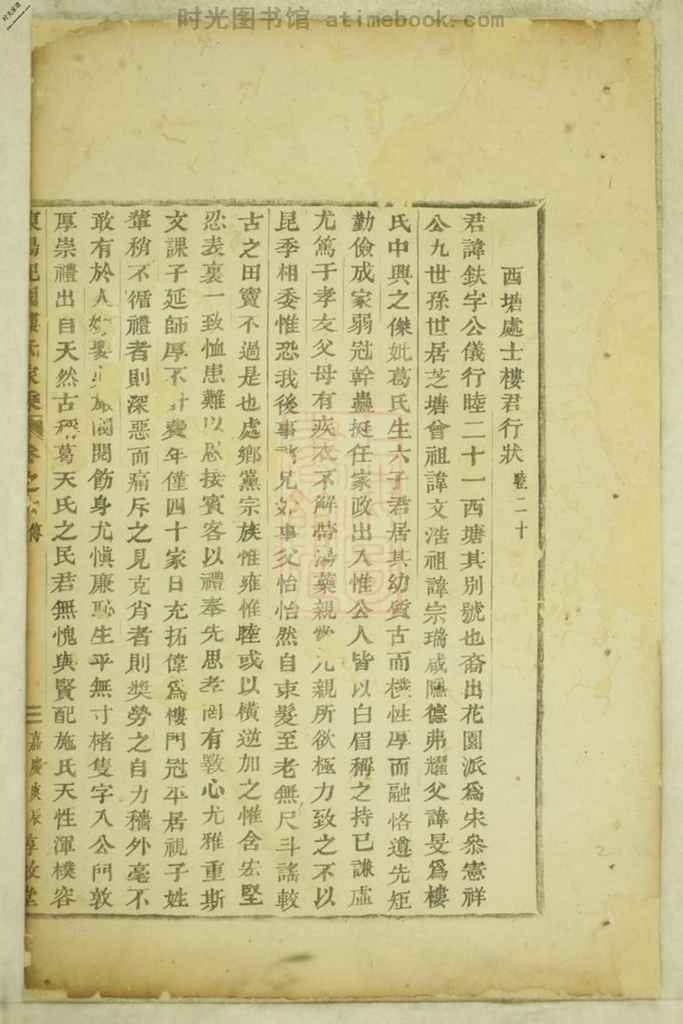 时光图书馆 atimebook.com
西塘處士樓君行狀 睦二十
君諱鈇字公儀行睦二十一西塘其別號也裔出花園派爲宋叅憲祥
公九世孫世居芝塘曾祖諱文浩祖諱宗瑞咸隱德弗耀父諱旻爲樓
氏中興之傑妣葛氏生六子君居其幼質古而樸性厚而融恪遵先矩
勤儉成家弱冠幹蠱挺任家政出入惟公人皆以白眉稱之持已謙虛
尤篤于孝友父母有疾衣不解帶湯藥親嘗凡親所欲極力致之不以
昆季相委惟恐我後事兄如事父怡怡然自束髮至老無尺斗謠較
古之田竇不過是也處鄉黨宗族惟雍惟睦或以橫逆加之惟含宏堅
忍表裏一致恤患難以恩接賓客以禮奉先思孝罔有斁心尤雅重斯
文課子延師厚不計費年僅四十家日充拓偉爲樓門冠平居視子姓
輩稍不循禮者則深惡而痛斥之見克肖者則獎勞之自力穡外毫不
敢有於人 閭閻飭身尤愼廉恥生平無寸楮隻字入公門敦
厚崇禮出自天然古稱葛天氏之民君無愧與賢配施氏天性渾樸容
東陽 園樓氏家乘 卷之 傳 三 嘉慶庚 敦睦堂